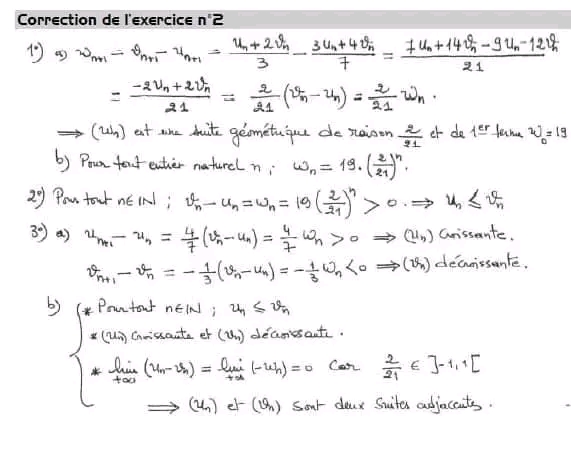 Correction de l'exercice n°2
1°) a) w_{n+1} = v_{n+1} - u_{n+1} = (u_n + 2v_n)/3 - (3u_n + 4v_n)/7 = (7u_n + 14v_n - 9u_n - 12v_n)/21
= (-2u_n + 2v_n)/21 = 2/21 (v_n - u_n) = 2/21 w_n.
⇒ (w_n) est une suite géométrique de raison 2/21 et de 1er terme w_0 = 19
b) Pour tout entier naturel n ; w_n = 19.(2/21)^n.
2°) Pour tout n∈IN ; v_n - u_n = w_n = 19(2/21)^n > 0. ⇒ u_n ≤ v_n
3°) a) u_{n+1} - u_n = 4/7 (v_n - u_n) = 4/7 w_n > 0 ⇒ (u_n) croissante.
v_{n+1} - v_n = -1/3 (v_n - u_n) = -1/3 w_n < 0 ⇒ (v_n) décroissante.
b) * Pour tout n∈IN ; u_n ≤ v_n
* (u_n) croissante et (v_n) décroissante.
* lim_{+∞} (u_n - v_n) = lim_{+∞} (-w_n) = 0 car 2/21 ∈ ]-1,1[
⇒ (u_n) et (v_n) sont deux suites adjacentes.